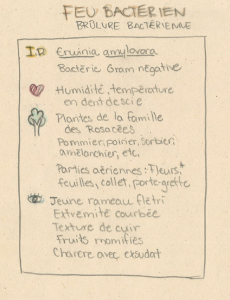 FEU BACTÉRIEN
BRÛLURE BACTÉRIENNE
ID Erwinia amylovora
Bactérie Gram négative
Humidité, température
en dent de scie
Plantes de la famille
des Rosacées
Pommier, poirier, sorbier,
amélanchier, etc.
Parties aériennes: Fleurs*
feuilles, collet, porte-greffe
Jeune rameau flétri
Extremité courbée
Texture de cuir
Fruits momifiés
Chancre avec exsudat